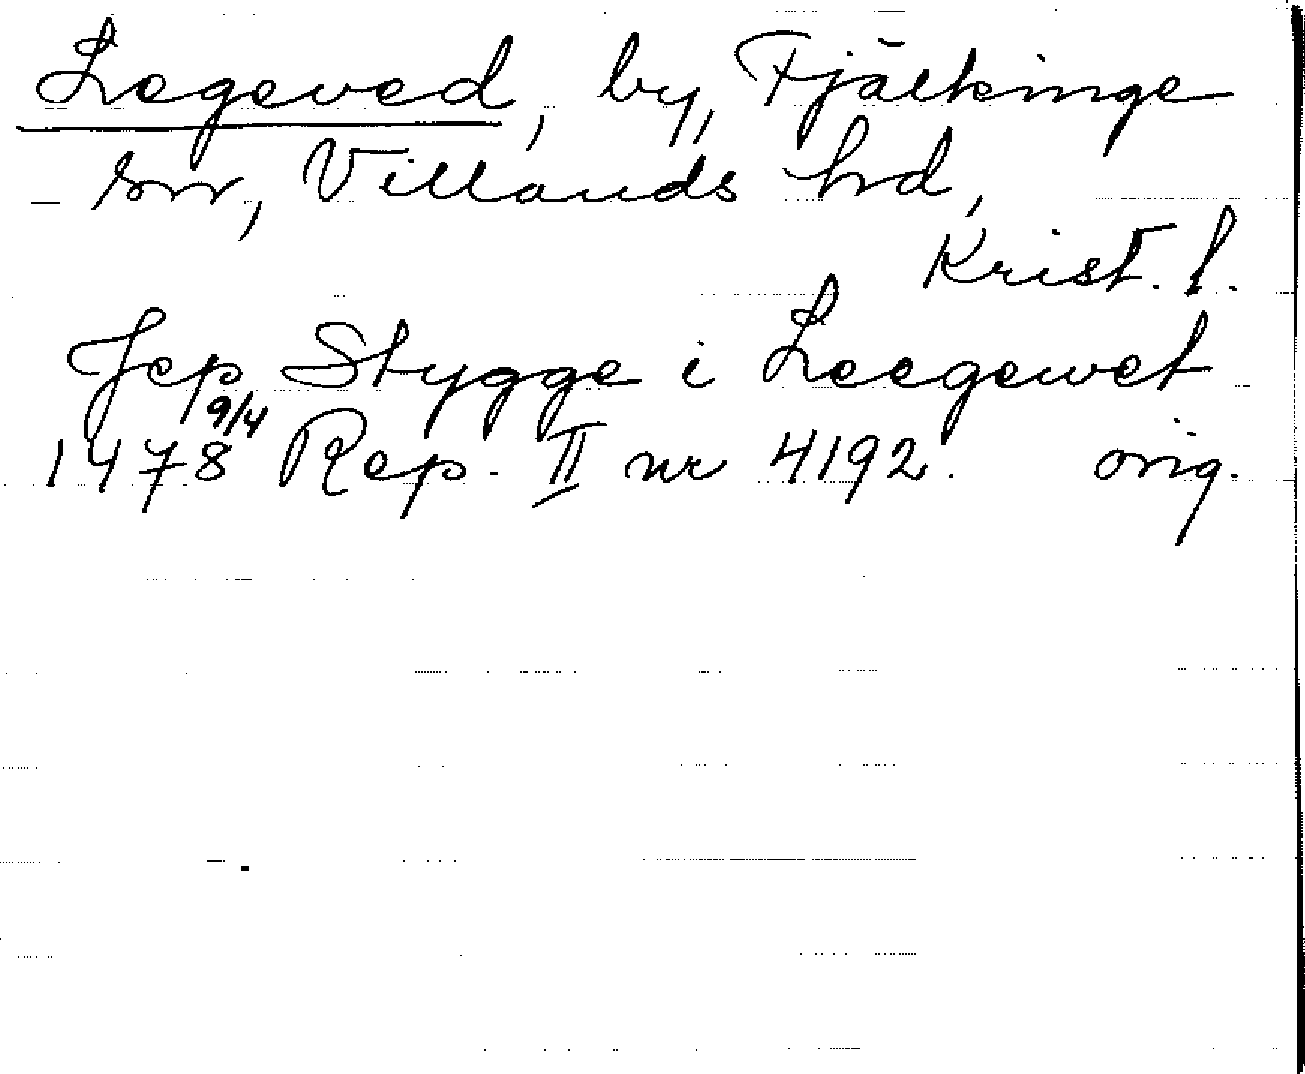 Legeved, by, Fjälkinge
sn, Villands hd,
Krist. l.
Jep Stygge i Leegewet
1478 9/4 Rep. II nr 4192. orig.